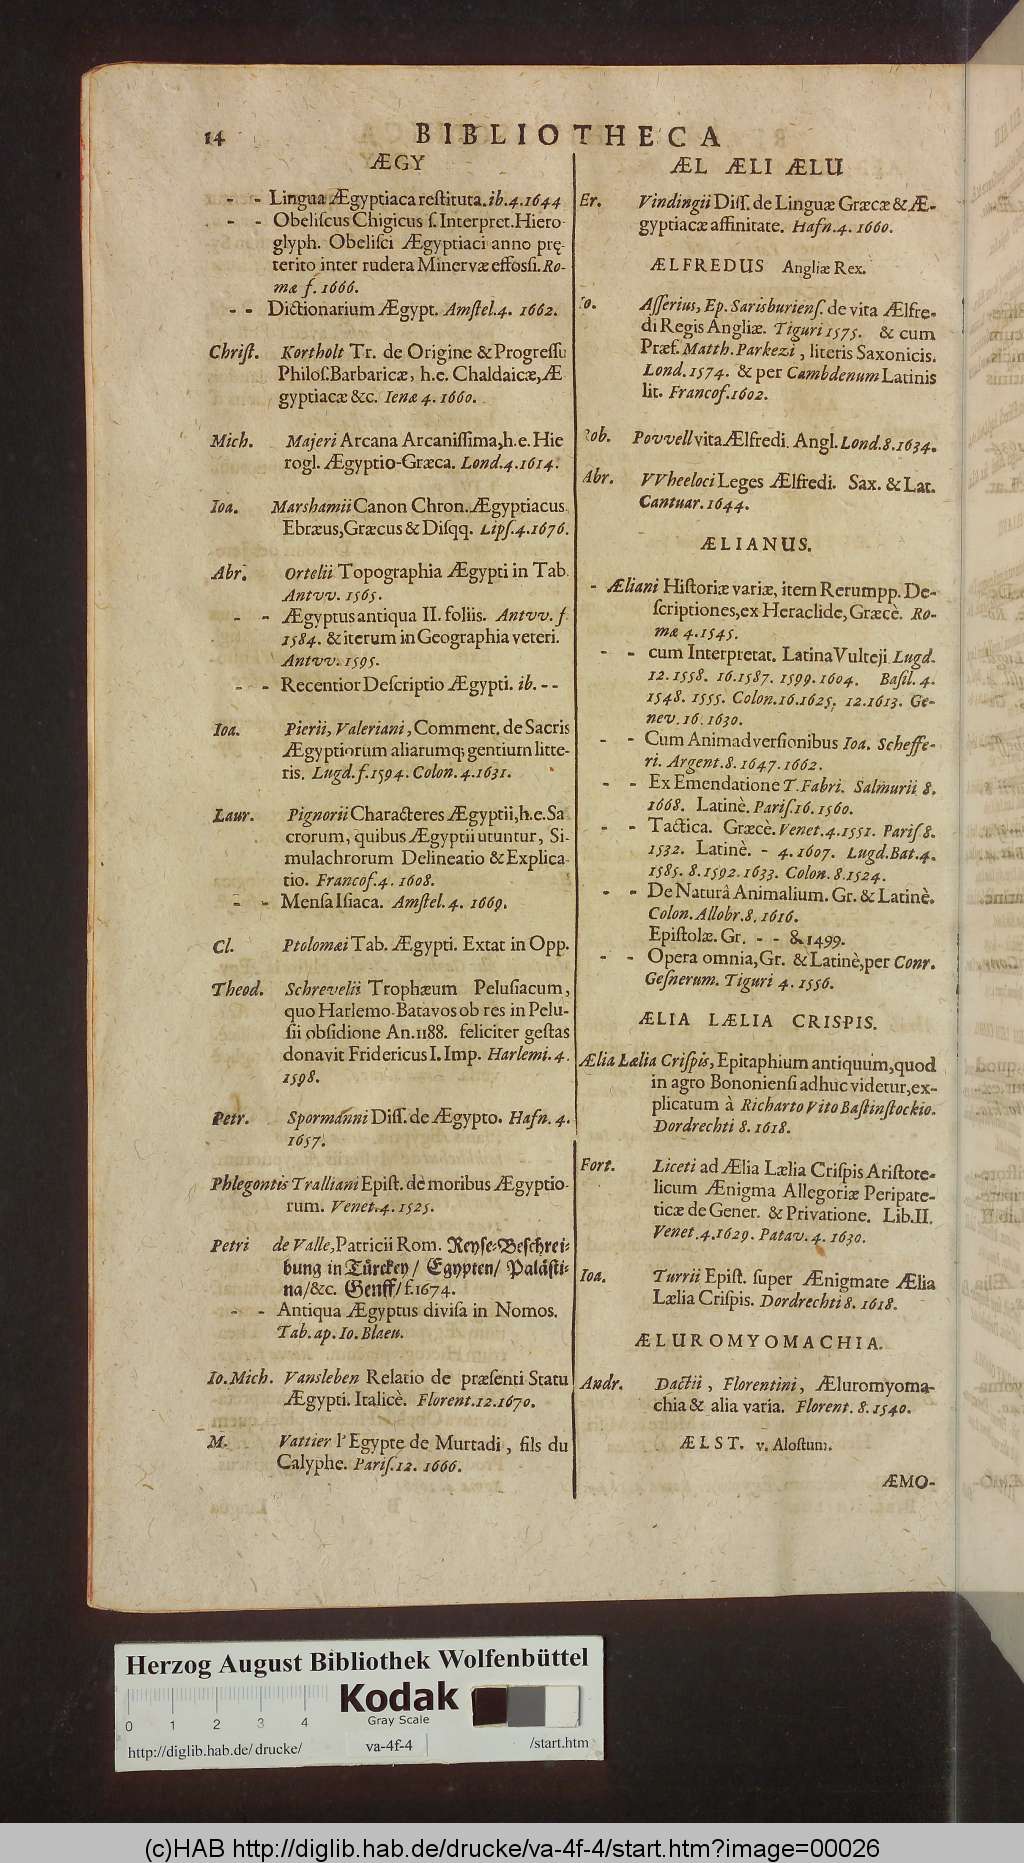 14 BIBLIOTHECA
ÆGY
- - Lingua Ægyptiaca reſtituta. ib. 4. 1644
- - Obeliſcus Chigicus ſ. Interpret. Hiero-
glyph. Obeliſci Ægyptiaci anno prę-
terito inter rudera Minervæ effoſſi. Ro-
mæ f. 1666.
- - Dictionarium Ægypt. Amſtel. 4. 1662.
Chriſt. Kortholt Tr. de Origine & Progreſſu
Philoſ. Barbaricæ, h. e. Chaldaicæ, Æ
gyptiacæ &c. Ienæ 4. 1660.
Mich. Majeri Arcana Arcaniſſima, h. e. Hie
rogl. Ægyptio-Græca. Lond. 4. 1614.
Ioa. Marshamii Canon Chron. Ægyptiacus
Ebræus, Græcus & Diſqq. Lipſ. 4. 1676.
Abr. Ortelii Topographia Ægypti in Tab.
Antvv. 1565.
- - Ægyptus antiqua II. foliis. Antvv. f
1584. & iterum in Geographia veteri.
Antvv. 1595.
- - Recentior Deſcriptio Ægypti. ib. - -
Ioa. Pierii, Valeriani, Comment. de Sacris
Ægyptiorum aliarumq; gentium litte-
ris. Lugd. f. 1594. Colon. 4. 1631.
Laur. Pignorii Characteres Ægyptii, h. e. Sa
crorum, quibus Ægyptii utuntur, Si-
mulachrorum Delineatio & Explica-
tio. Francof. 4. 1608.
- - Menſa Iſiaca. Amſtel. 4. 1669.
Cl. Ptolomæi Tab. Ægypti. Extat in Opp.
Theod. Schrevelii Trophæum Peluſiacum,
quo Harlemo-Batavos ob res in Pelu-
ſii obſidione An. 1188. feliciter geſtas
donavit Fridericus I. Imp. Harlemi. 4.
1598.
Petr. Spormanni Diſſ. de Ægypto. Hafn. 4.
1657.
Phlegontis Tralliani Epiſt. de moribus Ægyptio-
rum. Venet. 4. 1525.
Petri de Valle, Patricii Rom. Reyſe-Beſchrei-
bung in Türckey/ Egypten/ Paläſti-
na/ &c. Genff/ f. 1674.
- - Antiqua Ægyptus diviſa in Nomos.
Tab. ap. Io. Blaeu.
Io. Mich. Vansleben Relatio de præſenti Statu
Ægypti. Italicè. Florent. 12. 1670.
M. Vattier l'Egypte de Murtadi, fils du
Calyphe. Pariſ. 12. 1666.
ÆL ÆLI ÆLU
Er. Vindingii Diſſ. de Linguæ Græcæ & Æ-
gyptiacæ affinitate. Hafn. 4. 1660.
ÆLFREDUS Angliæ Rex.
o. Aſſerius, Ep. Sarisburienſ. de vita Ælfre-
di Regis Angliæ. Tiguri 1575. & cum
Præf. Matth. Parkezi, literis Saxonicis.
Lond. 1574. & per Cambdenum Latinis
lit. Francof. 1602.
ob. Povvell vita Ælfredi. Angl. Lond. 8. 1634.
Abr. VVheeloci Leges Ælfredi. Sax. & Lat.
Cantuar. 1644.
ÆLIANUS.
- Æliani Hiſtoriæ variæ, item Rerumpp. De-
ſcriptiones, ex Heraclide, Græcè. Ro-
mæ 4. 1545.
- - cum Interpretat. Latina Vulteji Lugd.
12. 1558. 16. 1587. 1599. 1604. Baſil. 4.
1548. 1555. Colon. 16. 1625. 12. 1613. Ge-
nev. 16. 1630.
- - Cum Animadverſionibus Ioa. Scheffe-
ri. Argent. 8. 1647. 1662.
- - Ex Emendatione T. Fabri. Salmurii 8.
1668. Latinè. Pariſ. 16. 1560.
- - Tactica. Græcè. Venet. 4. 1551. Pariſ 8.
1532. Latinè. - 4. 1607. Lugd. Bat. 4.
1585. 8. 1592. 1633. Colon. 8. 1524.
- - De Naturâ Animalium. Gr. & Latinè.
Colon. Allobr. 8. 1616.
Epiſtolæ. Gr. - - & 1499.
- - Opera omnia, Gr. & Latinè, per Conr.
Geſnerum. Tiguri 4. 1556.
ÆLIA LÆLIA CRISPIS.
Ælia Lælia Criſpis, Epitaphium antiquum, quod
in agro Bononienſi adhuc videtur, ex-
plicatum à Richarto Vito Baſtinſtockio.
Dordrechti 8. 1618.
Fort. Liceti ad Ælia Lælia Criſpis Ariſtote-
licum Ænigma Allegoriæ Peripate-
ticæ de Gener. & Privatione. Lib. II.
Venet. 4. 1629. Patav. 4. 1630.
Ioa. Turrii Epiſt. ſuper Ænigmate Ælia
Lælia Criſpis. Dordrechti 8. 1618.
ÆLUROMYOMACHIA.
Andr. Dactii, Florentini, Æluromyoma-
chia & alia varia. Florent. 8. 1540.
ÆLST. v. Aloſtum.
ÆMO-
Herzog August Bibliothek Wolfenbüttel
Kodak
Gray Scale
0 1 2 3 4
http://diglib.hab.de/drucke/ va-4f-4 /start.htm
(c)HAB http://diglib.hab.de/drucke/va-4f-4/start.htm?image=00026